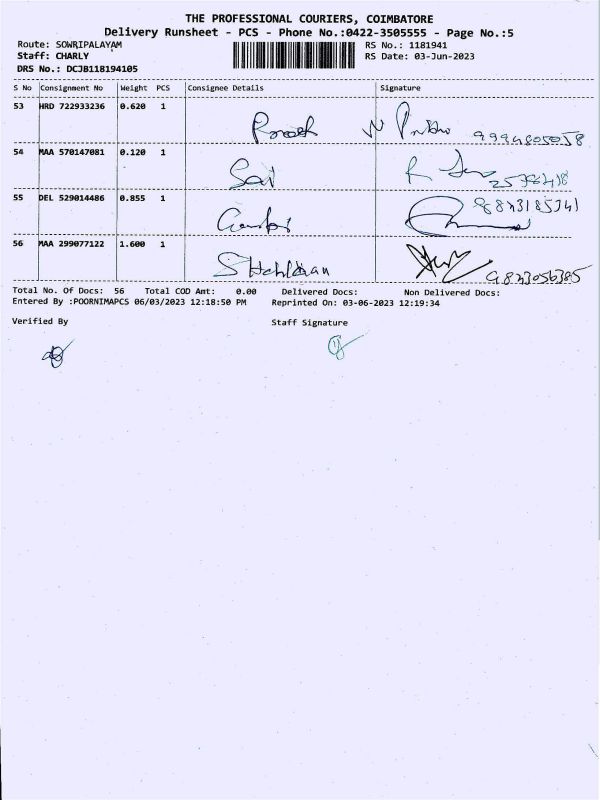 THE PROFESSIONAL COURIERS, COIMBATORE
Delivery Runsheet - PCS - Phone No.:0422-3505555 - Page No.:5
Route: SOWRIPALAYAM RS No.: 1181941
Staff: CHARLY RS Date: 03-Jun-2023
DRS No.: DCJB118194105
S No Consignment No Weight PCS Consignee Details Signature
53 HRD 722933236 0.620 1
54 MAA 570147081 0.120 1 Sai
55 DEL 529014486 0.855 1
56 MAA 299077122 1.600 1
Total No. Of Docs: 56 Total COD Amt: 0.00 Delivered Docs: Non Delivered Docs:
Entered By :POORNIMAPCS 06/03/2023 12:18:50 PM Reprinted On: 03-06-2023 12:19:34
Verified By Staff Signature